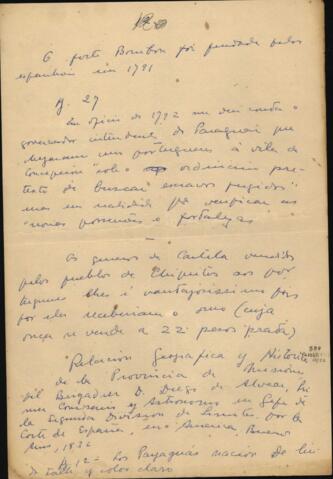 O forte Bourbon foi fundado pelos
espanhois em 1791
p. 27
Em oficio de 1792 conta o
governador intendente do Paraguai que
chegaram portugueses à vila de
Concepcion "ordinario pre-
texto de buscar escravos fugidos"
mas em realidade verificar as
"novas possessões e fortalezas
Os generos de Castela vendidos
pelos pueblos de Chiquitos aos por
tugueses lhes é vantajosissimo pois
por eles receberiam o ouro (cuja
onça se vende a 22 pesos prata)
Relacion Geografica y Historica
de la Provincia de Misiones
del Brigadier D. Diego de Alvear, Pri
mer Comisario y Astronomo en Gefe de
la Segunda Division de Limites por la
Corte de España, en America, Buenos
Aires, 1836
p. 12 - Los Payaguás nacion de lin
do talle y color claro